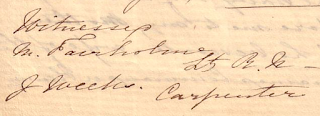 Witness
M. Fairholme Lt R. N —
J Weeks. Carpenter